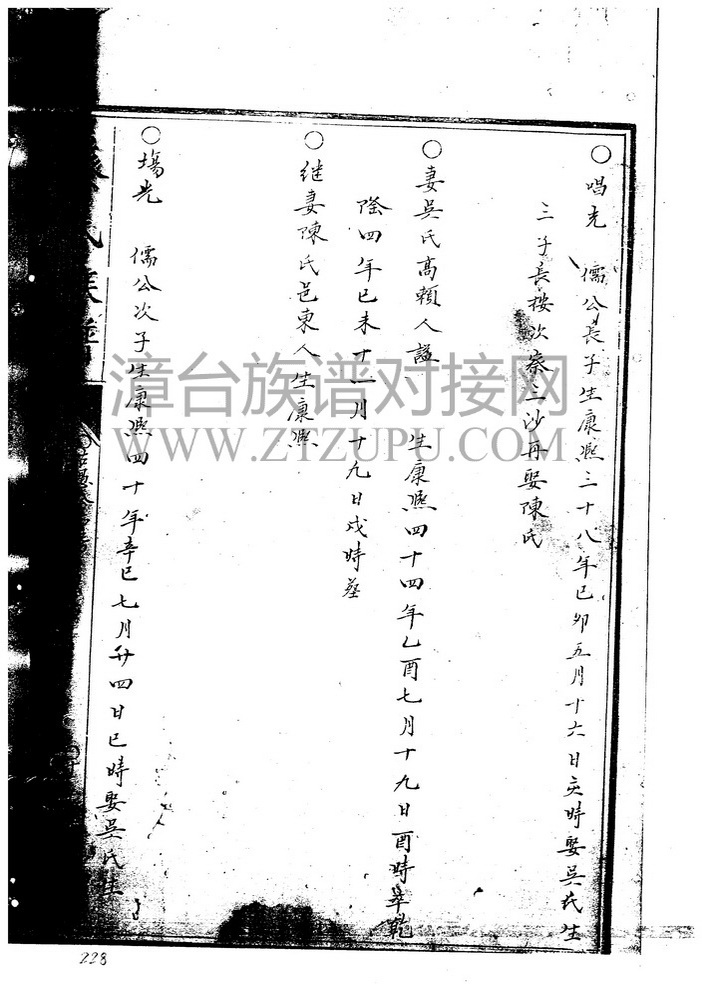 ○唱光 儒公長子生康熙三十八年已卯五月十六日亥時娶吳氏生
三子長樓次察三沙再娶陳氏
○妻吳氏高頼人諡 生康熙四十四年乙酉七月十九日酉時卒乾
隆四年已未十一月十九日戌時塟
○继妻陳氏邑東人生康熙
○塲光 儒公次子生康熙四十年辛巳七月廿四日巳時娶吳氏
氏族譜
漳台族谱对接网
WWW.ZTZUPU.COM
228